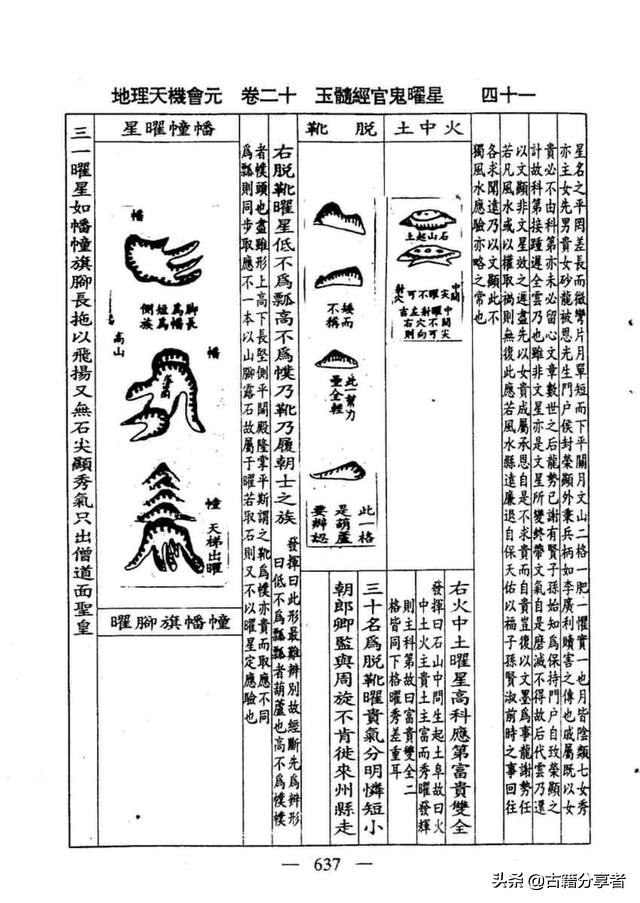 地理天機會元　卷二十　玉髓經官鬼曜星　四十一
星名之平岡差長而微彎片月單短而下平關月文山二格一肥一懼實一也月皆陰類七女秀
亦主女先男貴女砂龍被恩先生門戶侯封榮顯外秉兵柄如李廣利贖害之傳也戚屬既以女
貴必不由科第亦未必留心文章數世之后龍勢已謝有賢子孫始知為保持門戶自致榮顯之
計故科第接踵遲全雲乃也雖非文星亦是文星所變終帶文氣自是磨滅不得故后代雲乃還
以文顯非文星效之遲盡先以女貴成屬承恩自是不求貴而自貴豈復以文墨為事龍謝勢任
若凡風水或以權取禍則無復此應若風水縣遠廉退自保天佑以福子孫賢淑前時之事回往
各求聞達乃以文顯此不
獨風水應驗亦略之常也
火中土
土起山石
中間
尖曜不可
射穴
中曜射左右
間不穴右
尖可向則
右火中土曜星高科應第富貴雙全
發揮曰石山中間生起土阜故曰火
中土火主貴土主富而秀曜發輝
則主科第故曰富貴雙全二
格皆同下格曜秀差重耳
脫靴
矮而
不稱
此一幫力
量全輕
此一格
是葫蘆
要辯認
三十名為脫靴曜貴氣分明憐短小
朝郎卿監與周旋不肯徙來州縣走
右脫靴曜星低不為瓢高不為幞乃靴乃履朝士之族
發揮曰此形最難辨別故經斷先為辨形
曰低不為瓢瓢者葫蘆也高不為幞幞
者幞頭也盡雖形上高下長堅側平開殿隆掌平斯謂之靴為幞亦貴而取應不同
為瓢則同步取應不一本以山腳露石故屬于曜若取石則又不以曜星定應驗也
幡幢曜星
幡
腳長為幡
短為族
側
幡
高山
落開
幢
天梯出曜
幢幡旗腳曜
三一曜星如幡幢旗腳長拖以飛揚又無石尖顯秀氣只出僧道面聖皇
— 637 —
头条 @古籍分享者